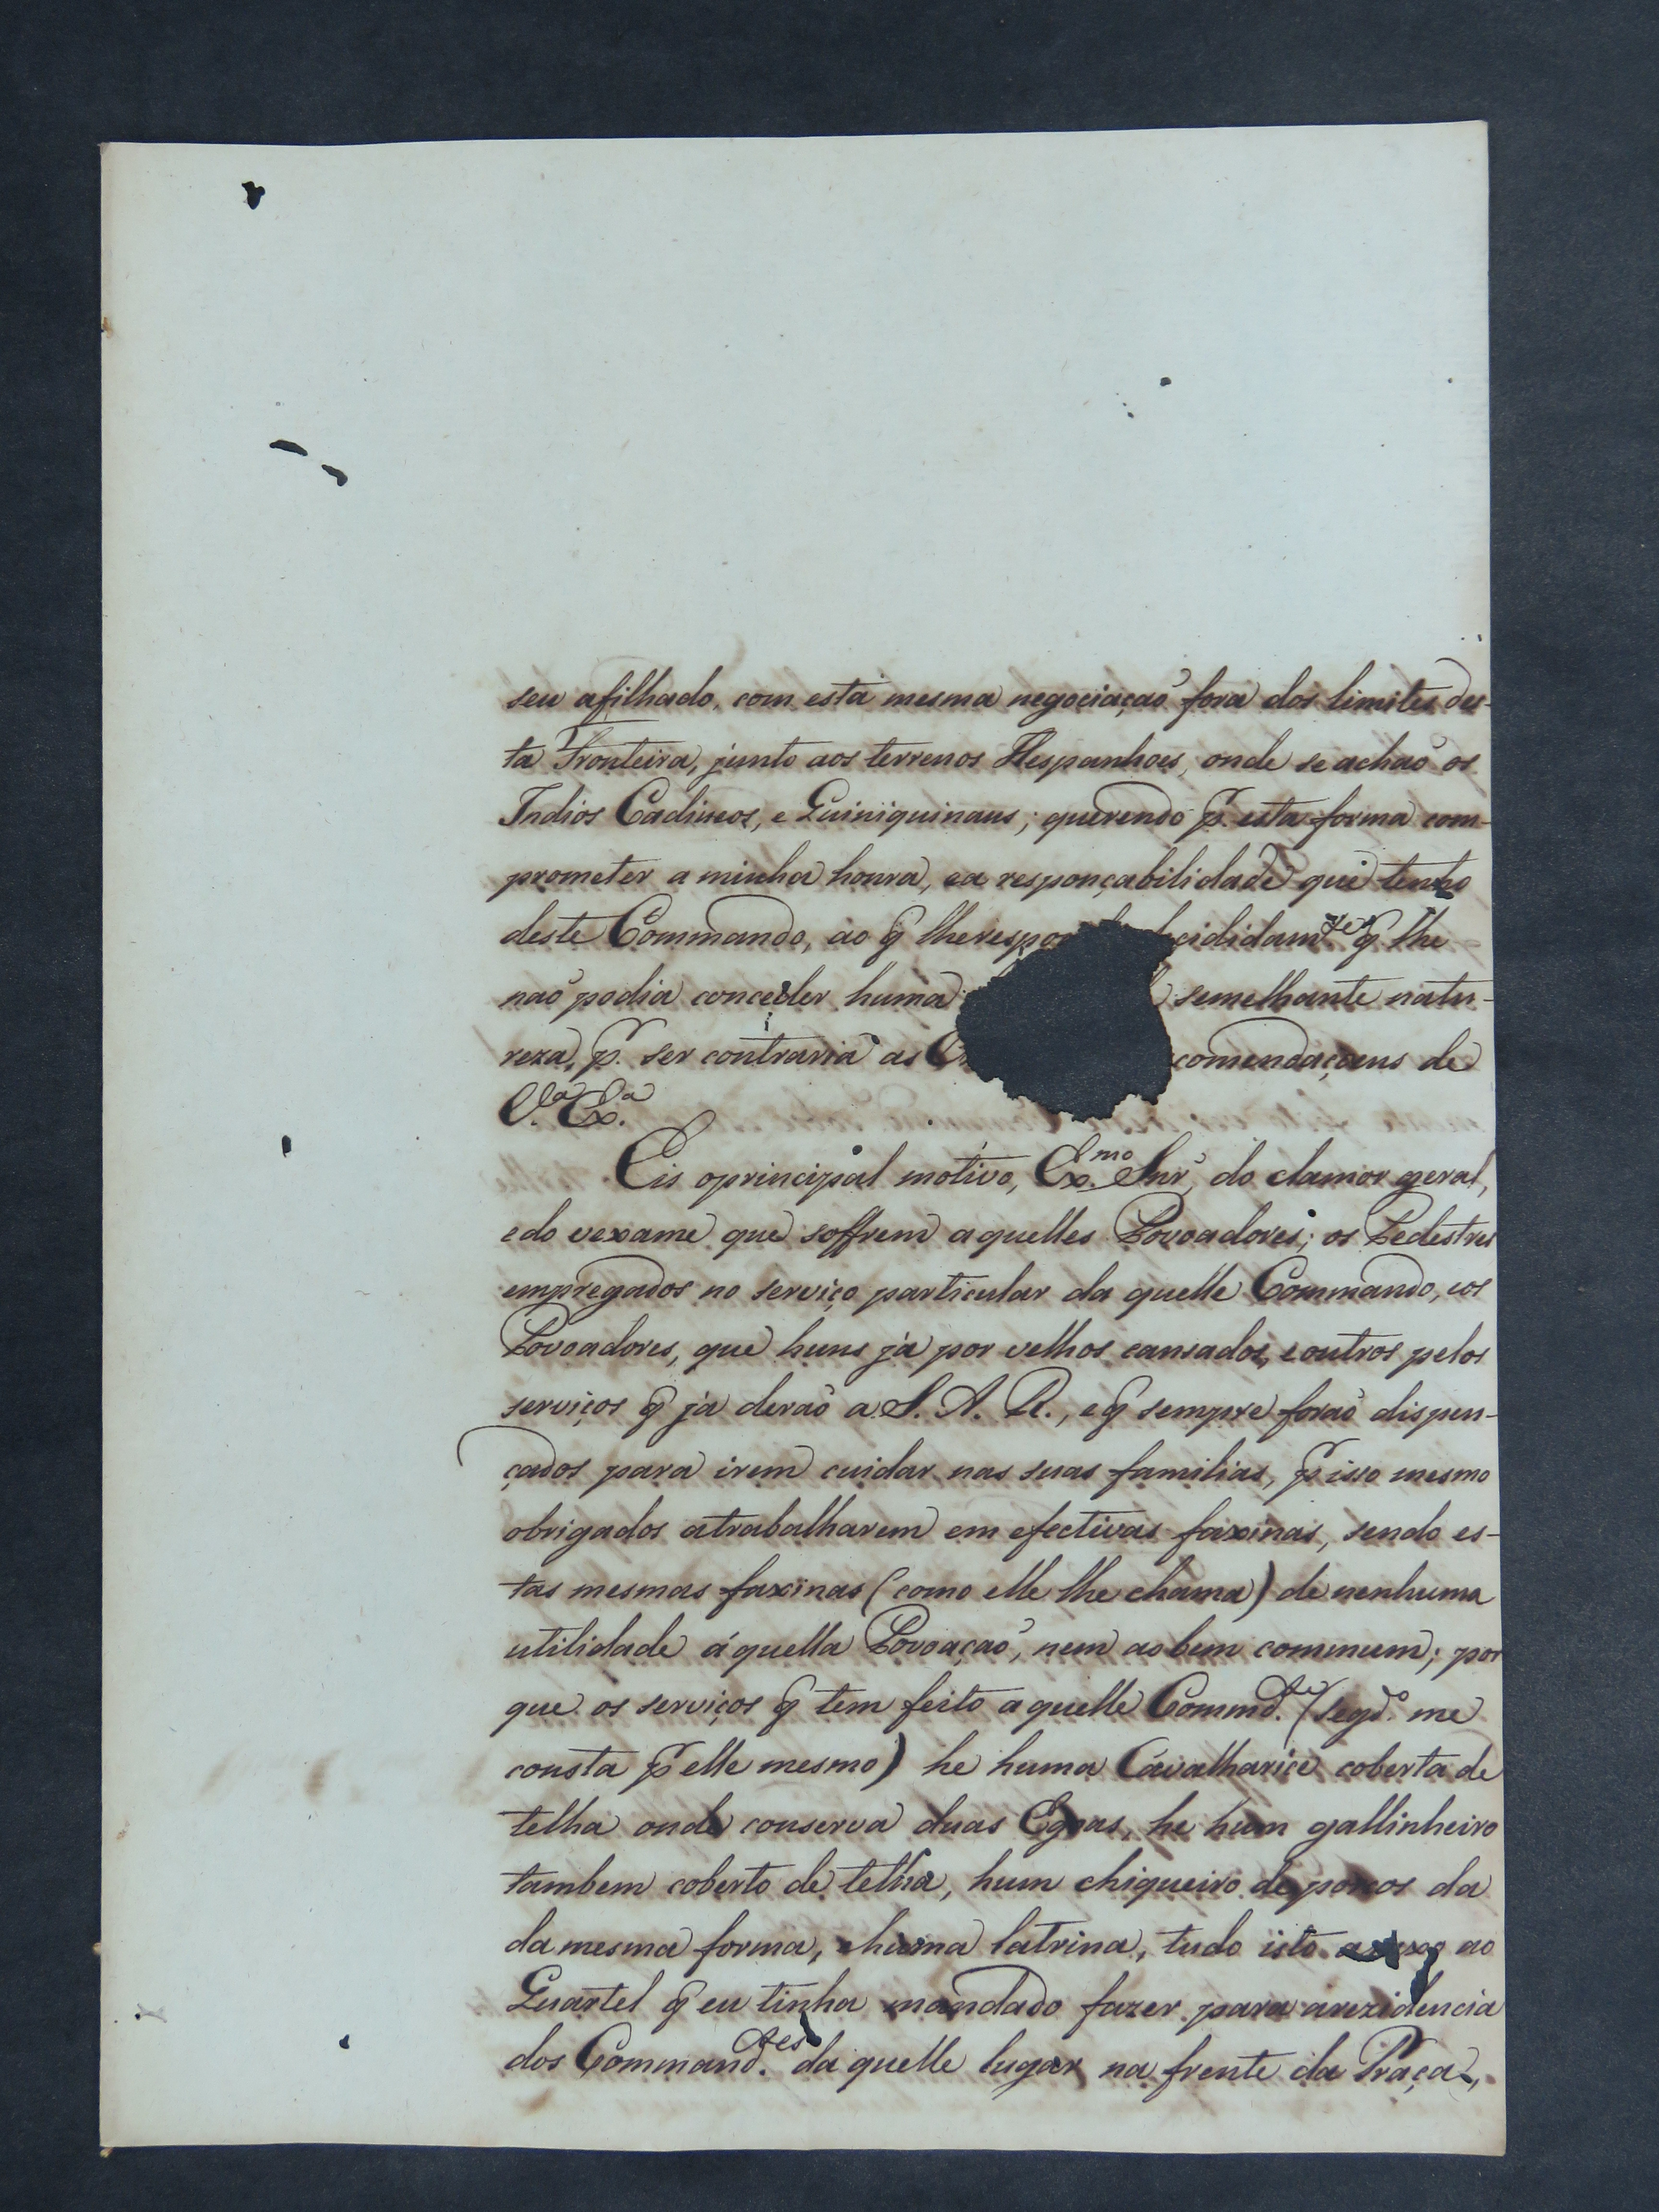 seu afilhado, com esta mesma negociação fora dos limites des-
ta Fronteira, junto aos terrenos Hespanhoes, onde se achaõ os
Indios Cadiueos, e Guiniquinaus; querendo p. esta forma com-
prometer a minha honra, ea responçabilidade que tenho
deste Commando, ao q lherespo cididam.te q lhe
naõ podia conceder huma semelhante natu-
reza, p. ser contraria as comendaçoens de
V.a Ex.a
Eis oprincipal motivo, Ex.mo Snr., do clamor geral,
edo vexame que soffrem aquelles Povoadores; os Pedestres
empregados no serviço particular da quelle Commando, eos
Povoadores, que huns já por velhos cansados, e outros pelos
serviços q já deraõ a S. A. R., e q sempre foraõ dispen-
çados para irem cuidar nas suas familias, p isso mesmo
obrigados atrabalharem em efectivas faxinas, sendo es-
tas mesmas faxinas (como elle lhe chama) de nenhuma
utilidade áquella Povoaçaõ, nem ao bem commum; por
que os serviços q tem feito aquelle Commd.te (segd.o me
consta p elle mesmo) he huma Cavalharice coberta de
telha onde conserva duas Egoas, he hum gallinheiro
tambem coberto de telha, hum chiqueiro de porcos da
da mesma forma, e huma latrina, tudo isto anexo ao
Quartel q eu tinha mandado fazer para arezidencia
dos Command.tes da quelle lugar na frente da Praça,